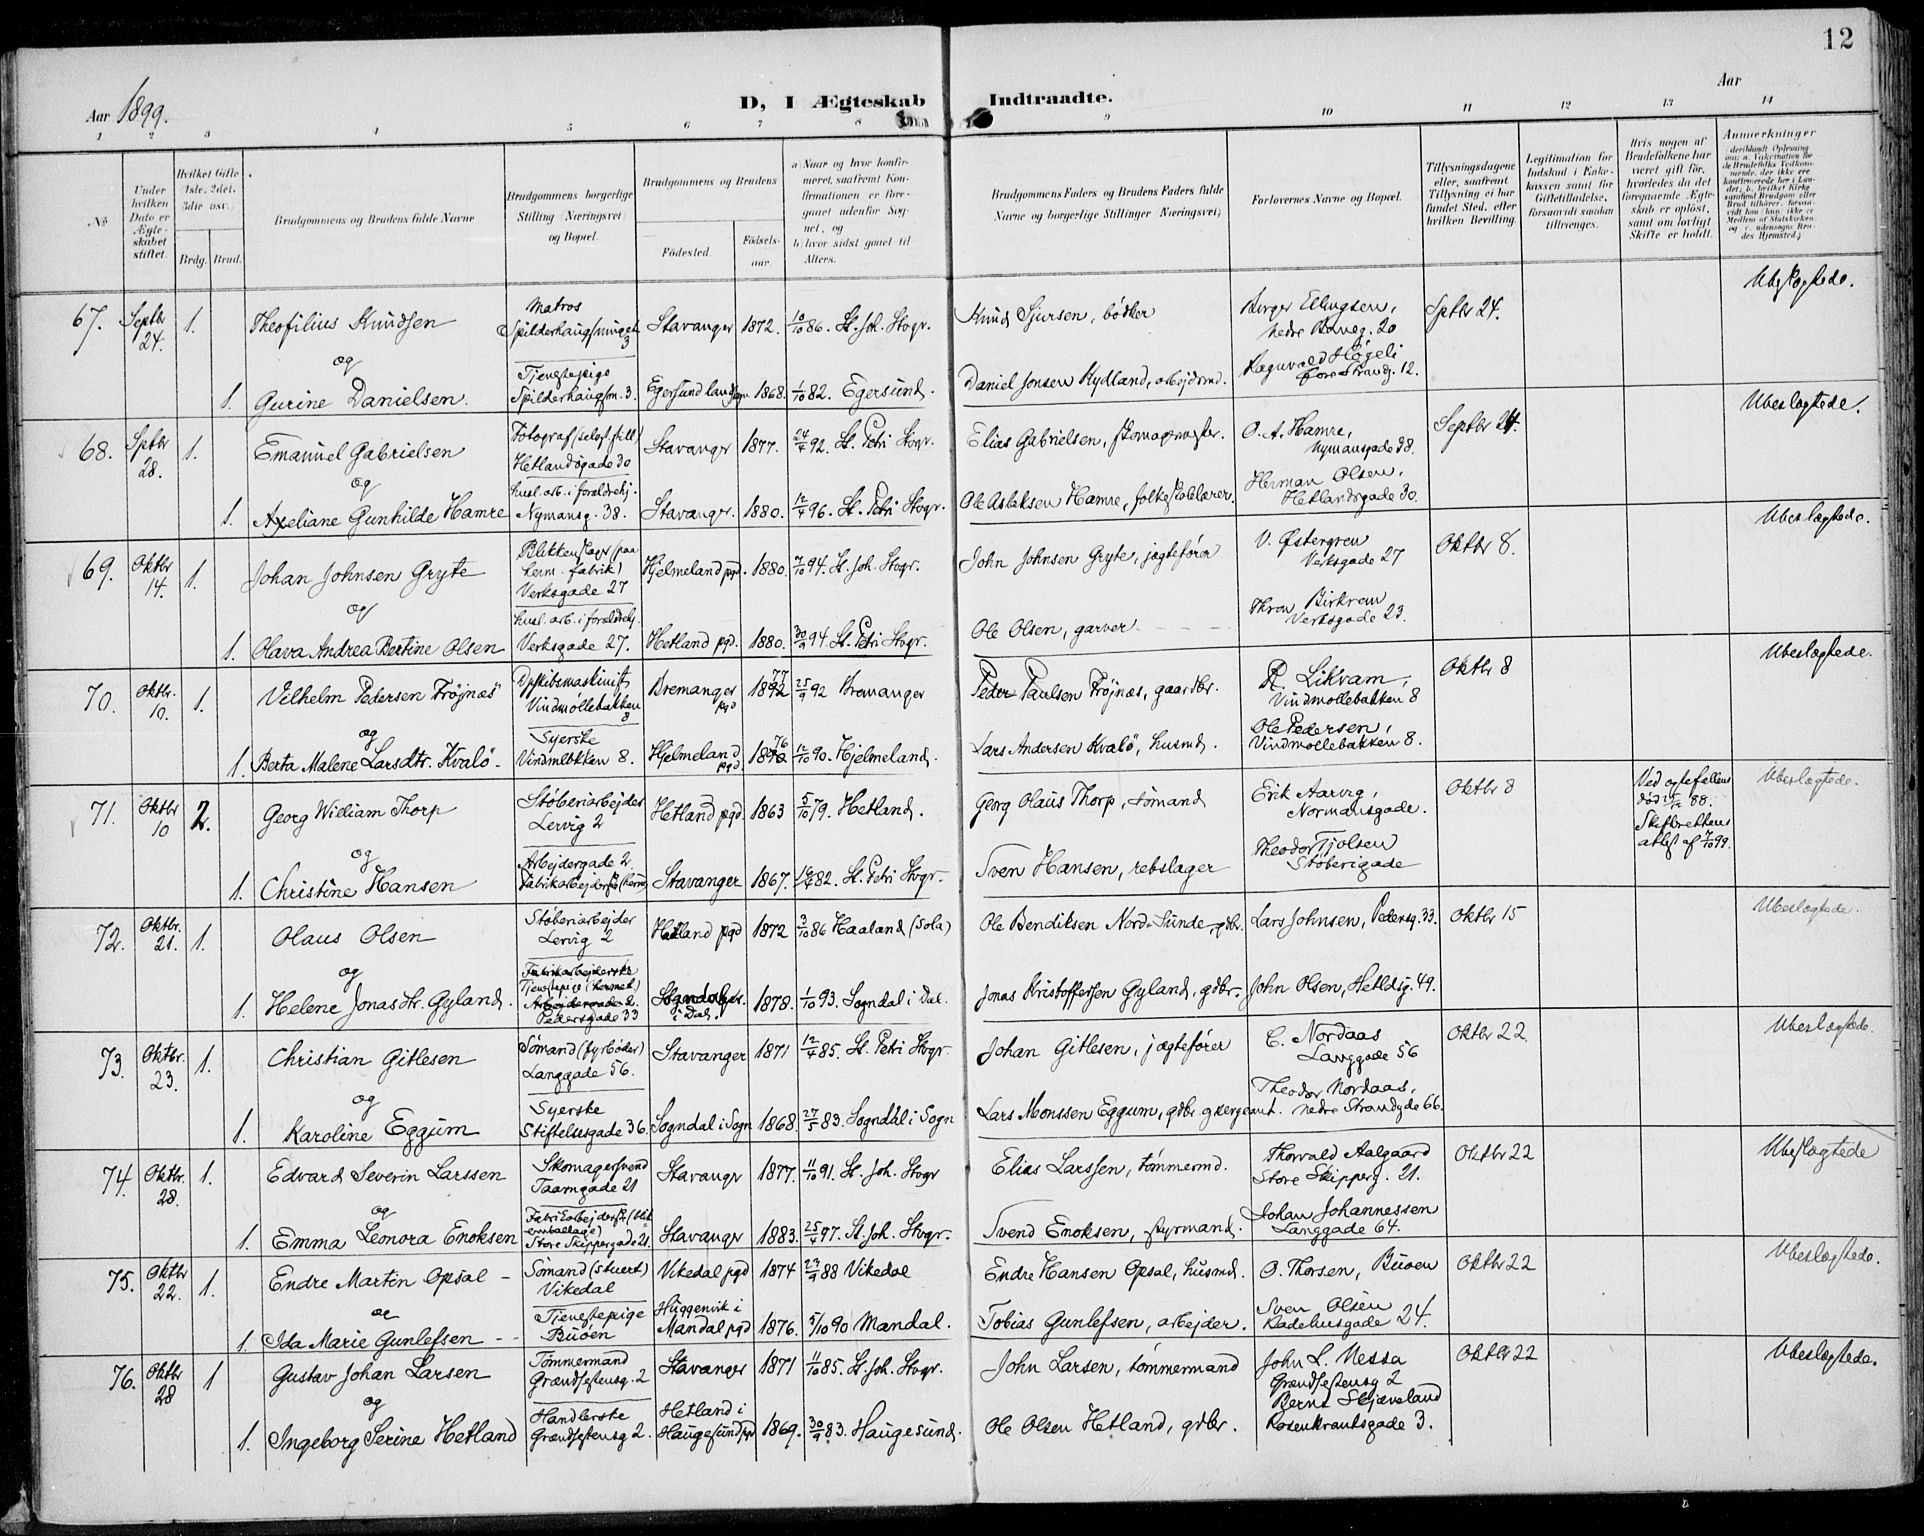 12
Aar 1899.
D, I Ægteskab Indtraadte.
Aar
1 2 3 4 5 6 7 8 9 10 11 12 13 14
No
Under hvilken Dato er Ægteskabet stiftet.
Hvilket Gifte (1ste, 2det, 3die osv.)
Brdg. Brud.
Brudgommens og Brudens fulde Navne
Brudgommens borgerlige Stilling (Næringsvei) og Bopæl.
Brudgommens og Brudens
Födested.
Födselsaar.
a) Naar og hvor konfirmeret, saafremt Konfirmationen er foregaaet udenfor Sognet, og
b) hvor sidst gaaet til Alters.
Brudgommens Faders og Brudens Faders fulde Navne og borgerlige Stillinger (Næringsvei)
Forlovernes Navne og Bopæl.
Tillysningsdagene eller, saafremt Tillysning ei har fundet Sted, efter hvilken Bevilling.
Legitimation for Indskud i Enkekassen samt for Giftetilladelse, forsaavidt saadan tiltrænges.
Hvis nogen af Brudefolkene har været gift før, hvorledes da det foregaaende Ægteskab er opløst, samt om lovligt Skifte er holdt.
Anmerkninger
67. Septbr 24. 1. Theofilius Knudsen Matros Spilderhaugsmuget 3 Stavanger 1872. 10/10 86. St. Joh. Stvgr. Knud Sjursen, bödker Birger Ellingsen, nedre Baneg. 20 Sptbr 24. Ubeslægtede.
og
1. Gurine Danielsen. Tjenestepige Spilderhaugsm. 3. Egersund landsogn 1868. 1/10 82. Egersund. Daniel Jonsen Rydland, arbejdsmd. Ragnvald Høgeli Øvre Strandg. 12.
68. Sptbr 28. 1. Emanuel Gabrielsen Fotograf (selvst. still.) Hetlandsgade 30 Stavanger 1877. 24/4 92. St. Petri Stvgr. Elias Gabrielsen, skomagermester. O. A. Hamre, Nymansgade 38. Septbr 24. Ubeslægtede.
og
1. Axeliane Gunhilde Hamre husl. arb. i forældrehj. Nymansg. 38. Stavanger. 1880. 12/4 96. St. Petri Stvgr. Ole Aslaksen Hamre, folkeskolelærer. Herman Olsen, Hetlandsgade 30.
69. Oktbr 14. 1. Johan Johnsen Gryte Blikkenslager (paa herm. fabrik) Verksgade 27 Hjelmeland pgd. 1880. 7/10 94. St. Joh. Stvgr. John Johnsen Gryte, jægtefører V. Østergren Verksgade 27 Oktbr 8. Ubeslægtede.
og
1. Olava Andrea Bertine Olsen husl. arb. i forældrehj. Verksgade 27. Hetland pgd. 1880. 30/9 94. St. Petri Stvgr. Ole Olsen, garver Thron Birkrem Verksgade 23.
70. Oktbr. 10. 1. Vilhelm Pedersen Frøjnæs Dpskibsmaskinist Vindmøllebakken 8 Bremanger pgd 1877 25/9 92 Bremanger Peder Paulsen Frøjnæs, gaardbr. R. Likvam, Vindmøllebakken 8 Oktbr 8 Ubeslægtede.
og
1. Berta Malene Larsdtr. Kvalö. Syerske Vindmlbkken 8. Hjelmeland pgd 1876 12/10 90. Hjelmeland. Lars Andersen Kvalö, husmd. Ole Pedersen, Vindmøllebakken 8.
71. Oktbr 10 2. Georg William Thorp Støberiarbejder Lervig 2 Hetland pgd 1863 5/10 79. Hetland. Georg Olaus Thorp, sømand Erik Aarvig, Normansgade. Oktbr 8 Ved ægtefællens død 88. Skifterettens attest af 7/10 99. Ubeslægtede.
og
1. Christine Hansen Arbejdergade 2 Fabrikarbejderske (herm.) Stavanger 1867. 16/4 82. St. Petri Stvgr. Sven Hansen, rebslager Theodor Tjølsen Støberigade
72. Oktbr. 21. 1. Olaus Olsen Støberiarbejder Lervig 2 Hetland pgd 1872 3/10 86 Haaland (Sola) Ole Bendiksen Nord-Sunde, gdbr. Lars Johnsen, Pedersg. 33. Oktbr 15 Ubeslægtede.
og
1. Helene Jonasdtr. Gyland. Fabrikarbejderske Tjenestepige (hermet.) Arbejdergade 2. Pedersgade 33 Sogndal i Dal. 1878. 1/10 93. Sogndal i Dal. Jonas Kristoffersen Gyland, gdbr. John Olsen, Hetldsg. 49.
73. Oktbr. 23. 1. Christian Gitlesen Sømand (fyrbøder) Langgade 56. Stavanger 1871 12/4 85. St. Petri Stvgr. Johan Gitlesen, jægtefører C. Nordaas Langgade 56 Oktbr 22. Ubeslægtede.
og
1. Karoline Eggum Syerske Stiftelsesgade 36. Sogndal i Sogn 1868. 27/5 83. Sogndal i Sogn Lars Monssen Eggum, gdbr og sergeant. Theodor Nordaas, nedre Strandgde 66.
74. Oktbr. 28. 1. Edvard Severin Larssen Skomagersvend Taarngade 21 Stavanger 1877. 11/10 91. St. Joh. Stvgr Elias Larssen, tømmermd. Thorvald Aalgaard Store Skipperg. 21. Oktbr 22 Ubeslægtede
og
1. Emma Leonora Enoksen Fabrikarbejderske (blikemballage) Store Skippergade 21. Stavanger 1883. 25/4 97. St. Joh. Stvgr. Svend Enoksen, styrmand. Johan Johannessen Langgade 64.
75. Oktbr 22. 1. Endre Martin Opsal Sømand (stuert) Vikedal Vikedal pgd 1874 23/9 88 Vikedal Endre Hansen Opsal, husmd. O. Thorsen, Buøen Oktbr 22 Ubeslægtede.
og
1. Ida Marie Gunlefsen Tjenestepige Buøen Huggenvik i Mandal pgd 1876. 5/10 90 Mandal. Tobias Gunlefsen, arbejder. Sven Olsen Ladehusgade 24.
76. Oktbr 28 1 Gustav Johan Larsen Tømmermand Grændsestensg. 2 Stavanger 1871 11/10 85. St. Joh. Stvgr. John Larsen, tømmermand John L. Nessa Grændsestensg 2 Oktbr 22 Ubeslægtede.
og
1. Ingeborg Serine Hetland Handlerske Grændsestensg 2. Hetland i Haugesund pgd 1869. 30/9 83. Haugesund. Ole Olsen Hetland, gdbr. Bernt Skjæveland Rosenkrantsgade 3.